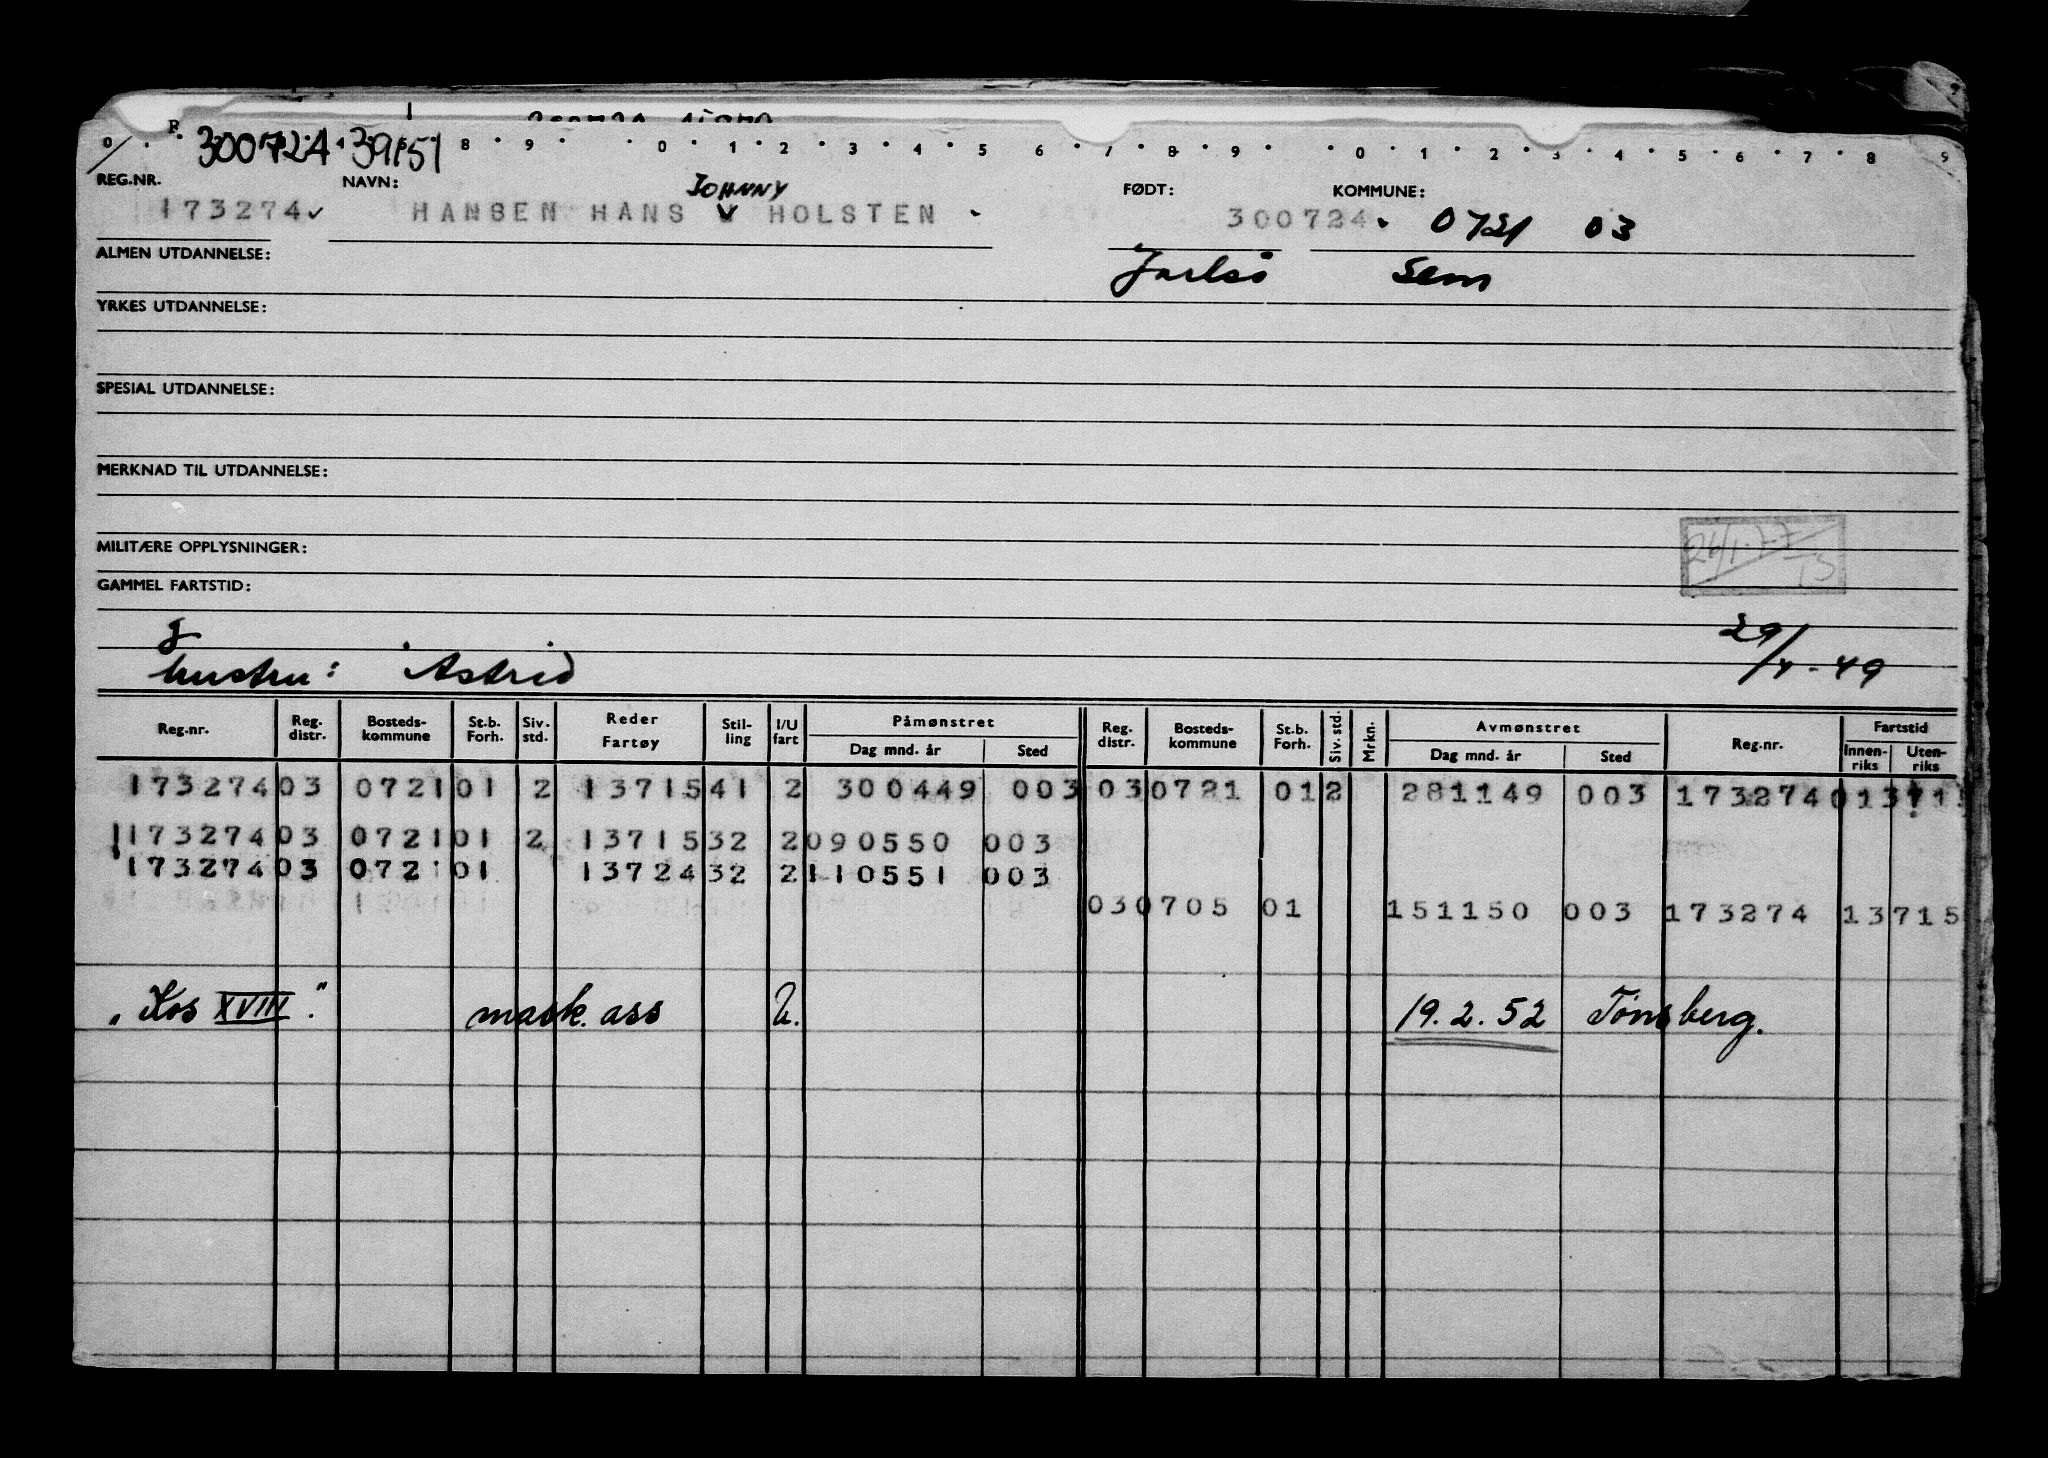 300724 39151
0 8 9 0 1 2 3 4 5 6 7 8 9 0 1 2 3 4 5 6 7 8 9
REG.NR. NAVN: FØDT: KOMMUNE:
JOHNNY
173274 HANSEN HANS V HOLSTEN 300724 0721 03
ALMEN UTDANNELSE: Jarlsö Sem
YRKES UTDANNELSE:
SPESIAL UTDANNELSE:
MERKNAD TIL UTDANNELSE:
MILITÆRE OPPLYSNINGER:
26/1-77
GAMMEL FARTSTID:
g
29/4-49
hustru: Astrid
Reg.nr. Reg. distr. Bosteds-kommune St.b. Forh. Siv. std. Reder Fartøy Stil-ling I/U fart Påmønstret Dag mnd. år Sted Reg. distr. Bosteds-kommune St.b. Forh. Siv. std. Mrkn. Avmønstret Dag mnd. år Sted Reg.nr. Fartstid Innen-riks Uten-riks
173274 03 0721 01 2 13715 41 2 300449 003 03 0721 01 2 281149 003 173274 013715
173274 03 0721 01 2 13715 32 2 090550 003
173274 03 0721 01 13724 32 2 110551 003
03 0705 01 151150 003 173274 13715
"Kos XVIII". mask. ass U. 19.2.52 Tønsberg.